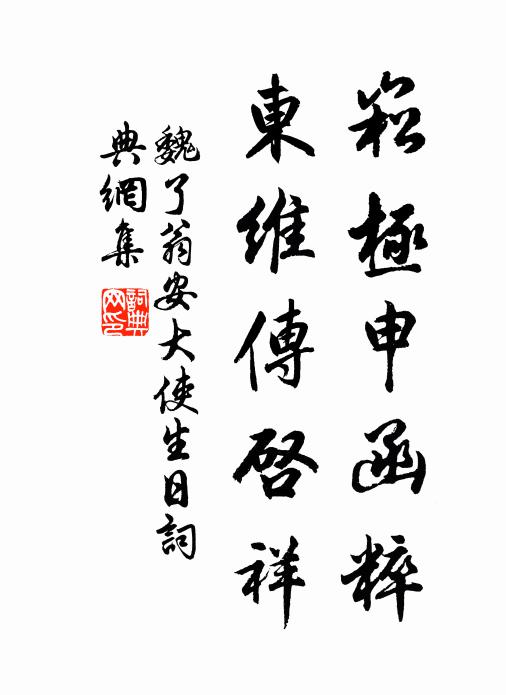 崧極申函粹
東維傳啓祥
魏了翁安大使生日詞
典網集
詞典
网印